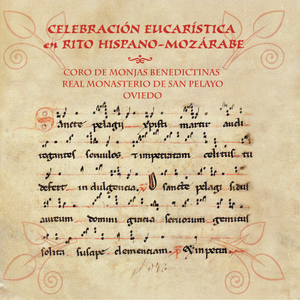 CELEBRACIÓN EUCARÍSTICA
en RITO HISPANO-MOZÁRABE
CORO DE MONJAS BENEDICTINAS
REAL MONASTERIO DE SAN PELAYO
OVIEDO
Sancte pelagi xpisti martir audi
rogantes servulos et inpetratam celitus tu
defert indulgencia, O sancte pelagi sidus
aureum domini gracia servorum gemitus
solita suscipe clemenciam. Ut inpetra